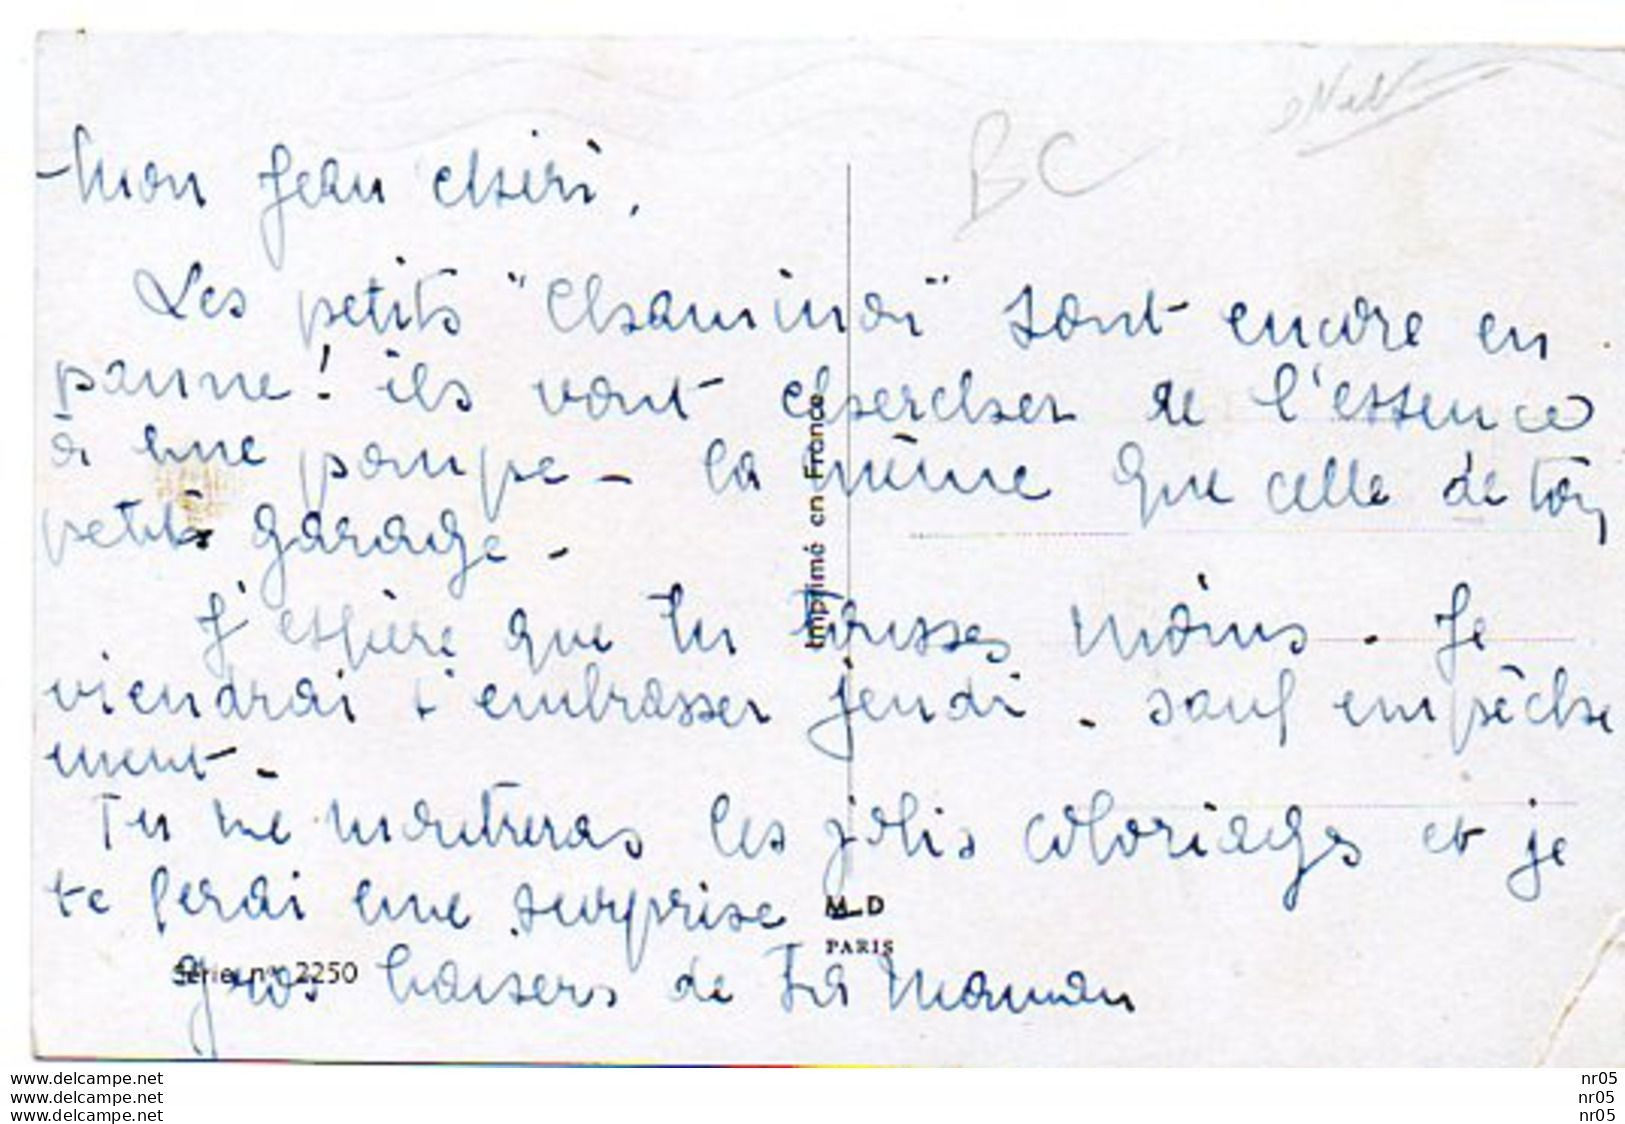 BC
Mon Jean chéri,
Les petits "Chaminou" sont encore en
panne! ils vont chercher de l'essence
à une pompe - la même que celle de ton
petit garage -
J'espère que tu tousses moins. Je
viendrai t'embrasser jeudi - sauf empêche
ment -
Tu me montreras les jolis coloriages et je
te ferai une surprise -
Gros baisers de Ta Maman
Imprimé en France
M_D
PARIS
Série n° 2250
www.delcampe.net
www.delcampe.net
www.delcampe.net
nr05
nr05
nr05